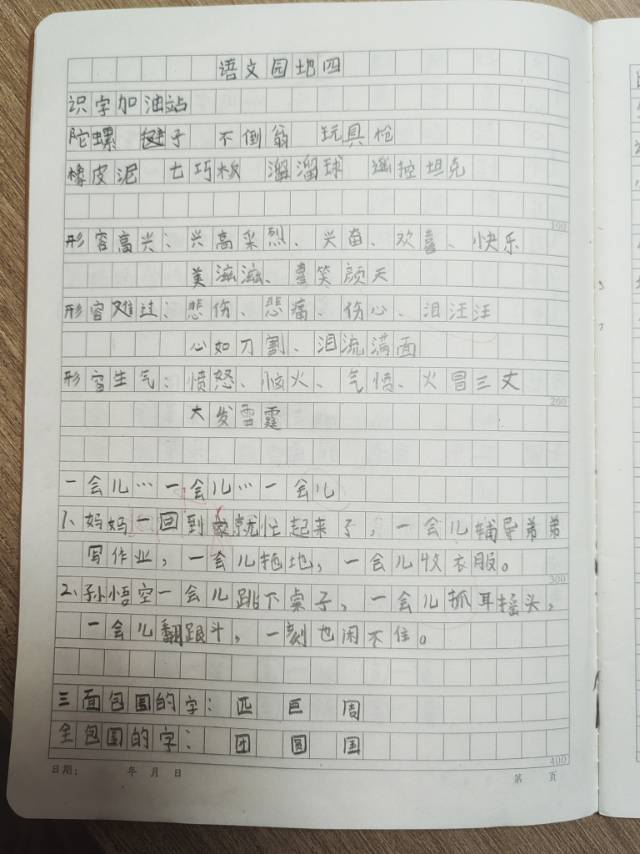 语文园地四
识字加油站
陀螺 毽子 不倒翁 玩具枪
橡皮泥 七巧板 溜溜球 遥控坦克
100
形容高兴：兴高采烈、兴奋、欢喜、快乐
美滋滋、喜笑颜天
形容难过：悲伤、悲痛、伤心、泪汪汪
心如刀割、泪流满面
形容生气：愤怒、恼火、气愤、火冒三丈
200
大发雷霆
一会儿…一会儿…一会儿
1、妈妈一回到家就忙起来了，一会儿辅导弟弟
写作业，一会儿拖地，一会儿收衣服。
300
2、孙悟空一会儿跳下桌子，一会儿抓耳挠头，
一会儿翻跟斗，一刻也闲不住。
三面包围的字：匹 巨 周
全包围的字：团 圆 国
400
日期： 年 月 日 第 页